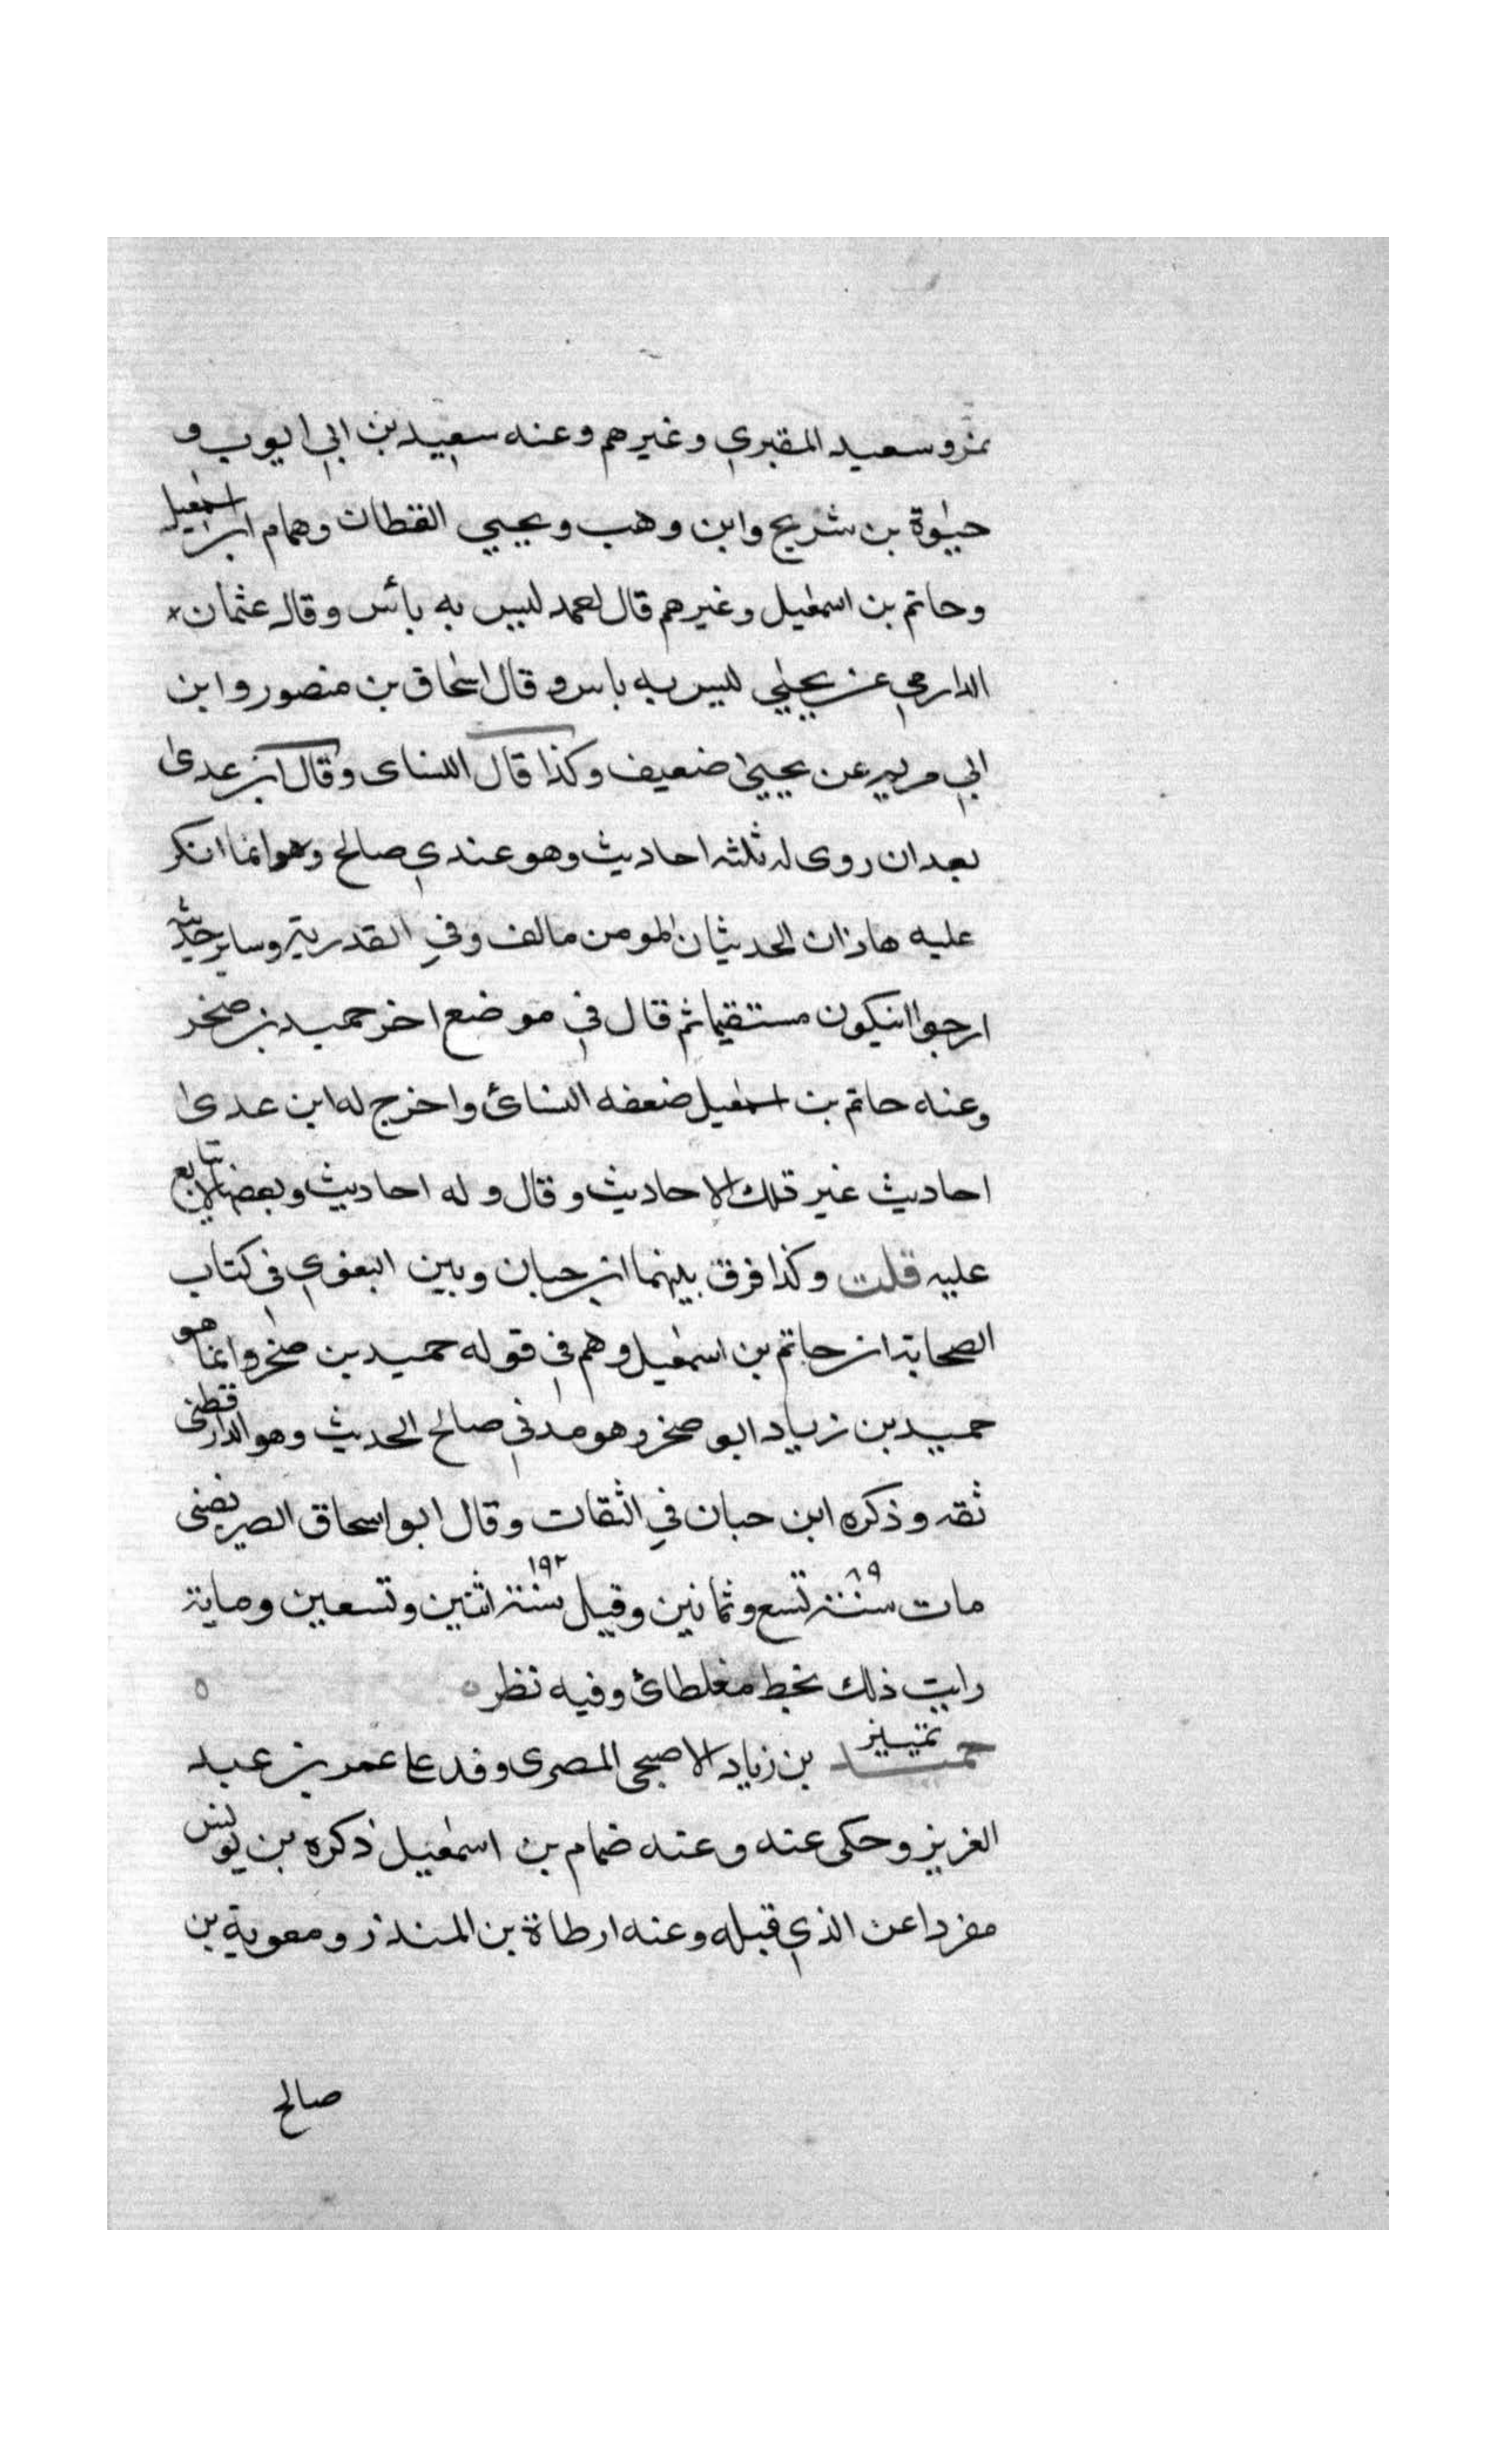 نمر وسعيد المقبري وغيرهم وعنه سعيد بن ابي ايوب و
حيوة بن شريح وابن وهب ويحيي القطان وهمام ابن اسمعيل
وحاتم بن اسمعيل وغيرهم قال احمد ليس به بائس وقال عثمان
الدارمي عن يحيي ليس به باس وقال اسحاق بن منصور وابن
ابي مريم عن يحيي ضعيف وكذا قال النساى وقال ابن عدى
بعد ان روى له ثلثه احاديث وهو عندي صالح وهو انما انكر
عليه هاذان الحديثان المومن مالف وفي القدرية وساير حديثه
ارجوا ان يكون مستقيما ثم قال في موضع اخر حميد بن صخر
وعنه حاتم بن اسمعيل ضعفه النسائ واخرج له ابن عدى
احاديث غير تلك الاحاديث وقال وله احاديث وبعضها لا يتابع
عليه قلت وكذا فرق بينهما ابن حبان وبين البغوي في كتاب
الصحابة ان حاتم بن اسمعيل وهم في قوله حميد بن صخر وانما هو
حميد بن زياد ابو صخر وهو مدني صالح الحديث وهو الدارقطنى
ثقه وذكره ابن حبان في الثقات وقال ابو اسحاق الصريفنى
مات سنة ٨٩ تسع وثمانين وقيل سنة ١٩٢ اثنين وتسعين وماية
رايت ذلك بخط مغلطائ وفيه نظر ه
حميد تمييز بن زياد الاصبحى المصرى وفد على عمر بن عبد
العزيز وحكى عنه وعنه ضمام بن اسمعيل ذكره بن يونس
مفردا عن الذي قبله وعنه ارطاة بن المنذر ومعوية بن
صالح